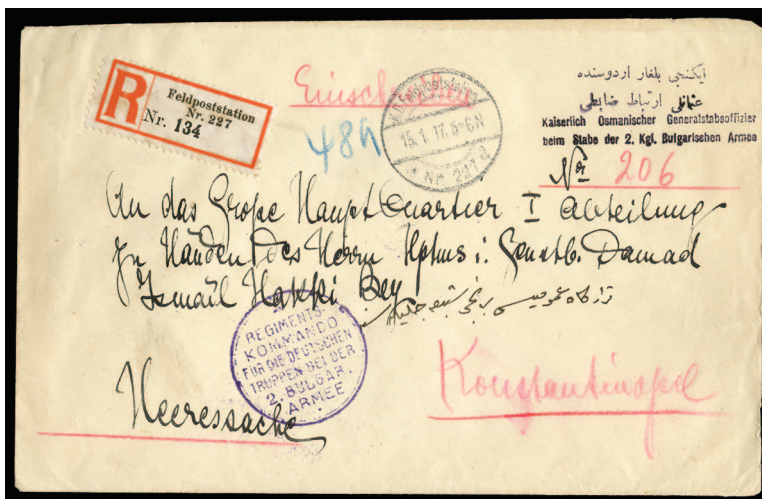 R
Feldpoststation
Nr. 227
Nr. 134
Einschreiben
489
K.D. Feldpoststation
15.1.17. 5-6N
* Nr 227 a
ایکنجی بلغار اردوسنده
عثمانلی ارتباط ضابطی
Kaiserlich Osmanischer Generalstabsoffizier
beim Stabe der 2. Kgl. Bulgarischen Armee
Nr 206
An das Große Haupt Quartier I Abteilung
Zu Händen des Herrn Hptms i. Genstb. Damad
Ismaïl Hakki Bey
REGIMENTS-
KOMMANDO
FÜR DIE DEUTSCHEN
TRUPPEN BEI DER
2. BULGAR.
ARMEE
Heeressache
Konstantinopel